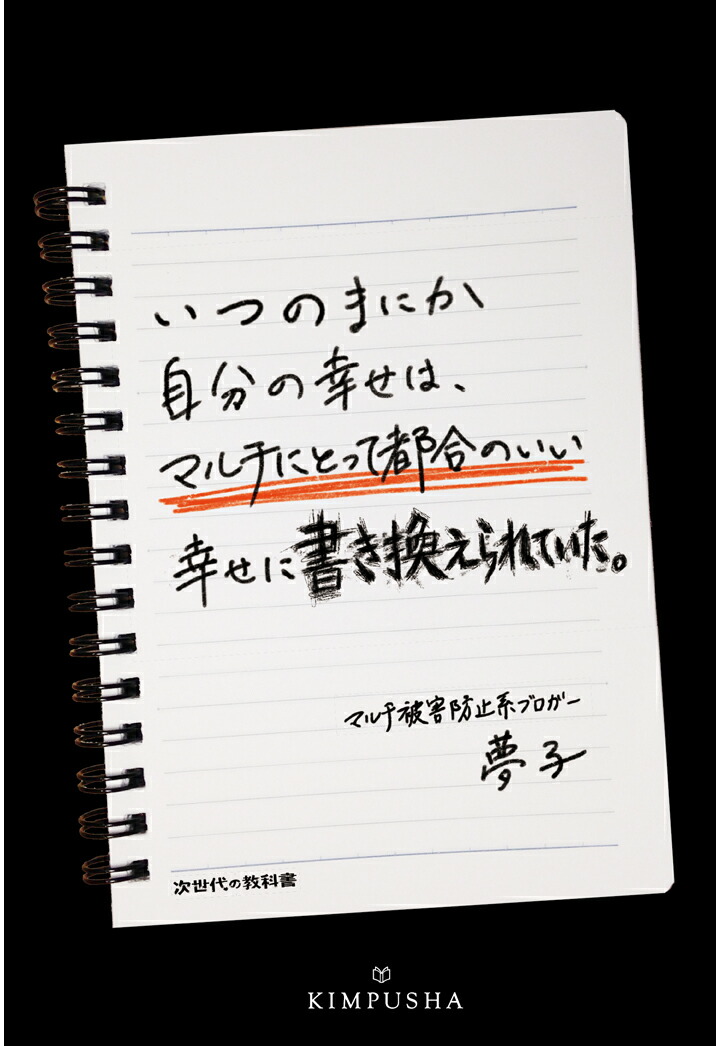 いつのまにか
自分の幸せは、
マルチにとって都合のいい
幸せに書き換えられていた。
マルチ被害防止系ブロガー
夢子
次世代の教科書
KIMPUSHA